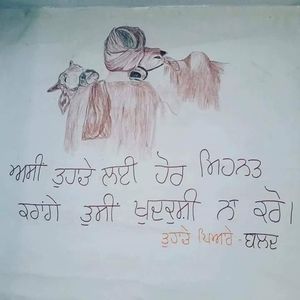 ਅਸੀਂ ਤੁਹਾਡੇ ਲਈ ਹੋਰ ਮਿਹਨਤ
ਕਰਾਂਗੇ ਤੁਸੀਂ ਖੁਦਕੁਸ਼ੀ ਨਾ ਕਰੋ।
ਤੁਹਾਡੇ ਪਿਆਰੇ - ਬਲਦ